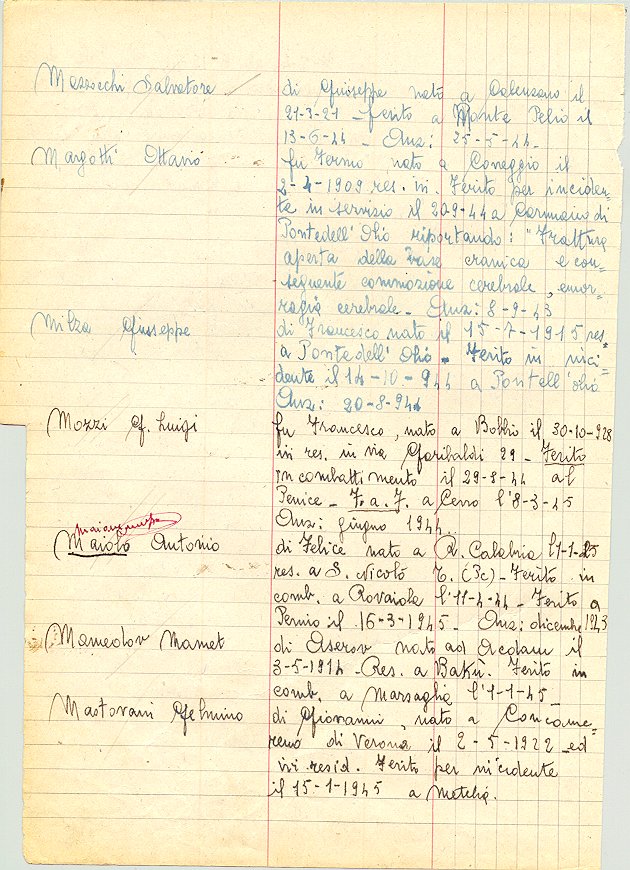 Mazzocchi Salvatore di Giuseppe nato a Calenzano il
21-3-21 ferito a Monte Pelio il
13-6-44 - Anz: 25-5-44-
Margotti Ottavio fu Fermo nato a Coneggio il
2-4-1909 res. in. Ferito per inciden-
te in servizio il 20-9-44 a di
Pontedell'Olio riportando: "Frattura
aperta della base cranica e con-
seguente commozione cerebrale, emor-
ragia cerebrale - Anz: 8-9-43
Milza Giuseppe di Francesco nato il 15-7-1915 res.
a Pontedell'Olio - Ferito in inci-
dente il 14-10-944 a Pontell'olio
Anz: 20-8-944
Mozzi G. Luigi fu Francesco, nato a Bobbio il 30-10-928
ivi res. in via Garibaldi 29 - Ferito
in combattimento il 29-8-44 al
Penice - F. a. F. a Cerro l'8-3-45
Anz: giugno 1944
Maiolo Antonio di Felice nato a R. Calabria l'1-1-25
res. a S. Nicolò T. (Pc) - Ferito in
comb. a Rovaiola l'11-4-44 - Ferito a
il 16-3-1945 - Anz: dicembre 1943
Mamedov Mamet di Aserov nato ad il
3-5-1914 - Res. a Bakù. Ferito in
comb. a Marsaglia l'1-1-45
Mastovani Gelmino di Giovanni, nato a Concame-
reno di Verona il 2-5-1922 - ed
ivi resid. Ferito per incidente
il 15-1-1945 a Metteglia.